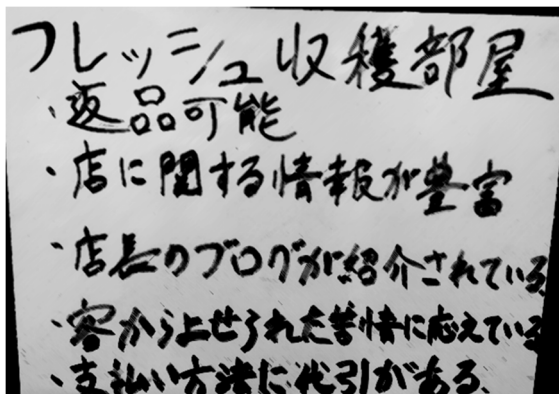 フレッシュ収穫部屋
・返品可能
・店に関する情報が豊富
・店長のブログが紹介されている
・客から上せられた苦情に応えている
・支払い方法に代引がある、